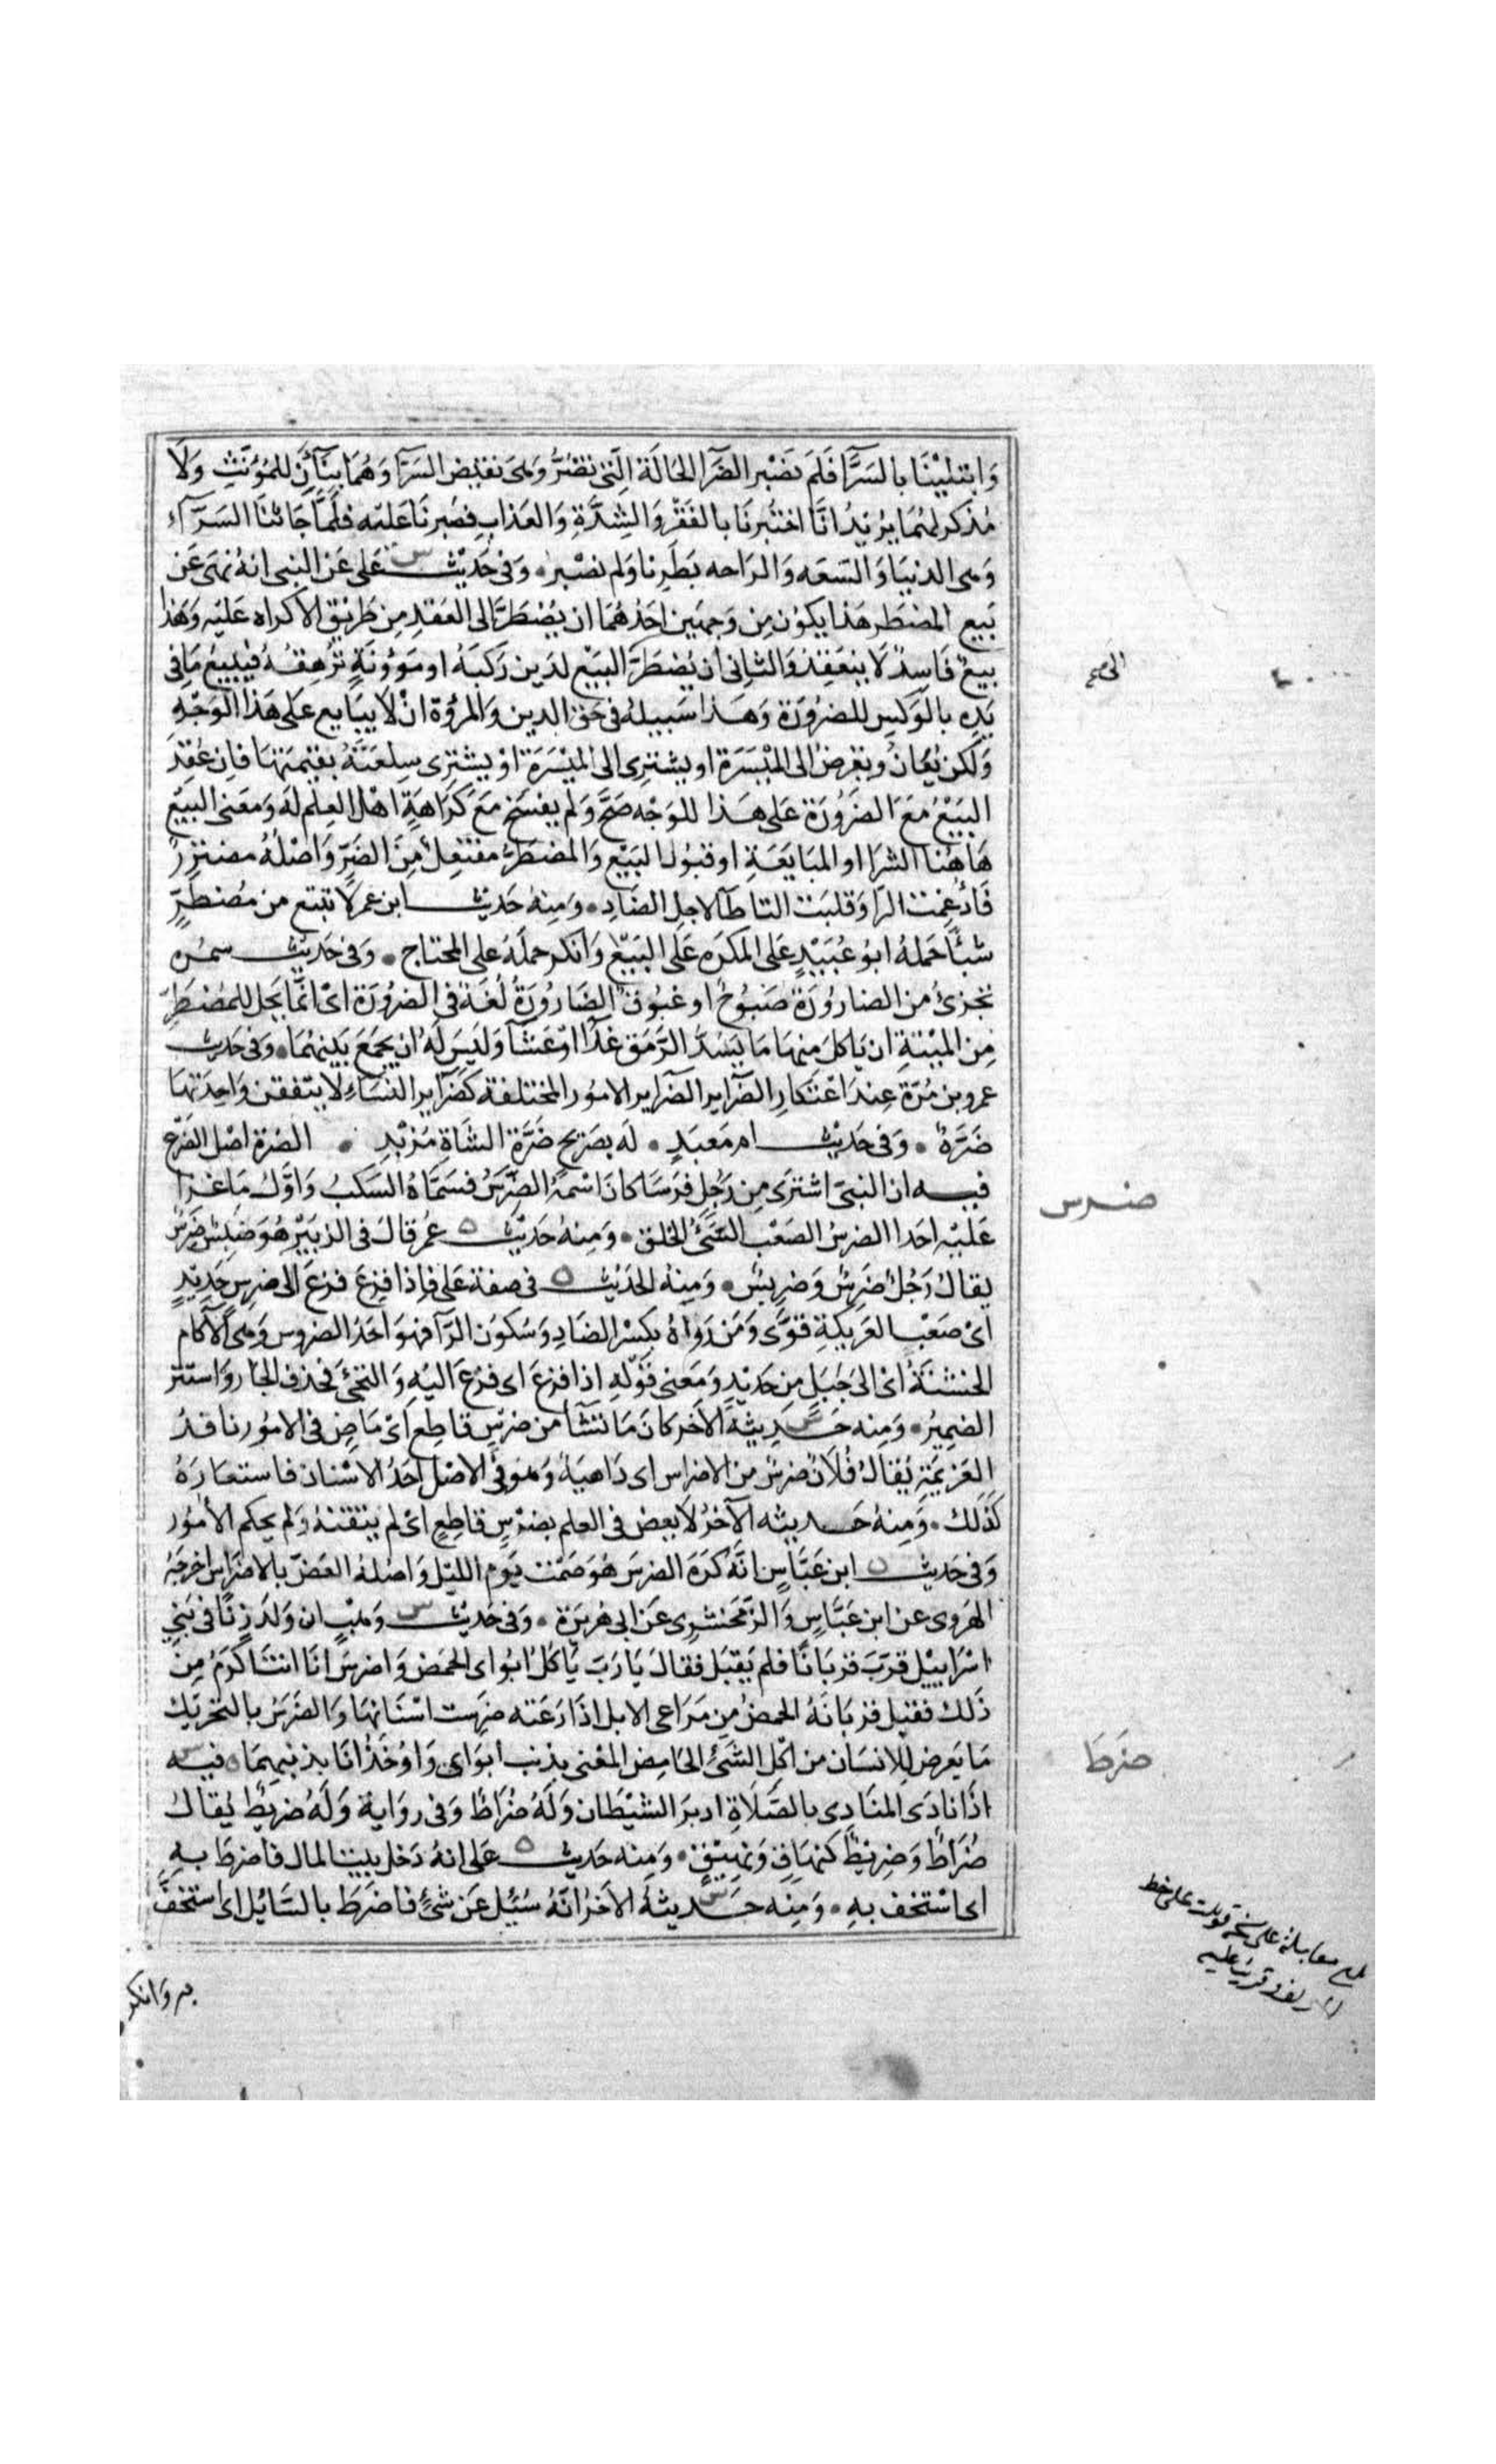 وَابتلِيْنَا بالسَرَّا فَلَم نَصْبر الضَّرَا الحَالَة الَّتى تضُرُّ وَهىَ نقيض السَرّآ وَهُمَا بنَآأن للمُؤنَّثِ وَلَا
مُذكر لهُمَا يُرِيْدُ انَّا اختُبرنَا بالفَقْرِ وَالشِدَّةِ وَالعَذابِ فصَبرنَا عَليْه فلَمَّا جَائتنَا السَرّآءِ
وَهى الدنيَا وَالسَعَه وَالراحه بَطَرِنا وَلم نصْبر، وَفى حَدِيْث س على عَن النبى انهُ نَهىَ عَن
بَيع المضطَر هَذا يَكوُن مِن وَجهَين احَدُهُمَا ان يُضْطَرَّ الى العَقدِ مِن طَريْق الاكراه عَليْه وَهَذا
بيعٌ فَاسِدٌ لَا ينعَقِدُ وَالثانى ان يُضطَرَّ البَيْع لدَين رَكبَهُ او مَؤونَةٍ تُرْهِقهُ فيَبيْعُ مَا فى
يَدِهِ بالوَكسِ للضرُورَة وَهَذا سَبيلهُ فى حَق الدين وَالمرُوُة ان لا يبَايع عَلى هَذا الوَجْهِ
وَلكن يُعَانُ ويُقرضُ الى المَيْسَرَة او يشترى الى المَيْسَرَة او يشترى سِلعَتَهُ بقيمَتهَا فاِن عُقِدَ
البَيْعُ مَعَ الضَرُورَة عَلى هَذا للوَجْه صَحَّ وَلم يفسَخ مَعَ كرَاهَةِ اهْل العِلم لَه وَمَعنى البَيْع
هَاهُنا الشرَا او المبَايَعَةِ او قبُول البَيْع وَالمضطَرُّ مفتَعِلٌ مِنَ الضَرِّ وَاصْلهُ مضتَررٌ
فَأدغِمت الرّا وَقلبَت التا طَآ لاجلِ الضَادِ، وَمِنهُ حَديْث ابن عمر لا تبتَع من مُضطَرٍّ
شيْأ حَملهُ ابوُ عُبَيْدٍ عَلى المكرَه عَلَى البَيْع وَانكر حملهُ على المحتاج، وَفى حَديْث سمُره
تجزئُ من الضارُورَة صَبُوحٌ او غبُوقٌ الضَارُورَةُ لُغَة فى الضرُورَة اىْ انّما يَحل للمُضطَرِّ
مِن المَيْتةِ ان يَاكلَ مِنهَا مَا يَسُدُّ الرَمَق غَدَآ اوْ عَشَآ وَليْسَ لَهُ ان يجمَعَ بَينهُمَا، وَفى حَديْث
عمرو بن مُرَّة عِندَ اعْتكارِ الضرَآير الضرَآير الامُور المختلفة كضَرَآير النسَاءِ لا يتفقن وَاحِدَتهَا
ضَرَّةٌ، وَفى حَديْث ام مَعبَدٍ، لَه بصَريحٍ ضَرَّة الشَاة مُزْبدِ، الضرَّة اصْل الضَرْع
فيه ان النبى اشترَى مِن رَجُلٍ فرَسَا كانَ اسْمهُ الضَّرِسُ فسَمَّاهُ السَكبُ وَاوّل مَا غَزا
عَلَيْهِ احَدا الضرسُ الصَعْب السَّيّئُ الخلق، وَمِنهُ حَدِيْث ه عُمر قالَ فى الزبَيْر هُوَ ضَبِسٌ ضَرِسٌ
يقالُ رَجُلٌ ضَرِسٌ وَضَريسٌ، وَمِنهُ الحَدِيْث ه فى صفة عَلى فاِذا فزِعَ فزعَ الى ضرسٍ حَدِيْدٍ
اىْ صَعْب العَريكةِ قوَىّ وَمَن رَواهُ بكسْر الضَادِ وَسُكوُن الرَّآ فهوَ احَدُ الضرُوس وَهى الآكام
الخشنَةُ اى الى جَبَلٍ مِن حَدِيْدٍ وَمَعنى قوْله اذا فزعَ اى فزعَ اليْهِ وَالتجئَ فحذف الجَار وَاستتر
الضمِيرُ، وَمِنه حَديثهُ س الآخر كانَ مَا نشَأ من ضِرْسٍ قاطِع اىْ مَاضٍ فى الامُور نافذ
العَزِيمَةِ يُقالُ فُلانٌ ضرسٌ من الاضراس اى دَاهِيَةٌ وَهوَ فى الاصْل احَدُ الاسْنان فاستعارَهُ
كَذلك، وَمِنهُ حَديثه الآخرُ لا يعض فى العلم بضرْسٍ قاطِعٍ اىْ لم يُتقنهُ وَلم يحكم الأمُور
وَفى حَديث ه ابن عَبَّاسٍ انَّهُ كَرَهَ الضرسَ هُوَ صَمْت يَوم الليْل وَاصْلهُ العَضّ بالاضرَاس اخرجَهُ
الهَروى عن ابن عَبَّاسٍ وَالزّمخشرِى عَن ابى هُرَيرَة، وَفى حَدِيْث س وَهْب ان وَلدَ زنًا فى بَنِى
اسْرَايِيْل قرّبَ قربَانًا فلم يُقبَل فقالَ يَا رَبّ يَأكُلُ ابَوُاى الحمْض وَاضرسُ انَا انتَ اكرَمُ مِن
ذَلك فقبِل قربَانَهُ الحمضُ مِن مَراعى الابل اذَا رَعَته ضرِسَت اسْنَانهَا وَالضَرَسُ بالتحْرِيك
مَا يَعرض لِلانسَان من اكل الشَىْءِ الحَامِض المعْنى يذنب ابوَاى وَاوُخَذُ انَا بذنبهمَا فيه س
اذَا نادَى المنَادِى بالصَّلَاةِ ادبرَ الشيْطَان وَلَهُ ضُرَاطٌ وَفى روَاية وَلَهُ ضريْطٌ يُقالُ
ضُرَاطٌ وَضريْطٌ كنهَاقٍ وَنهِيْقٍ، وَمِنه حَديْث ه عَلى انهُ دَخل بيْت المال فاضرطَ بهِ
اى اسْتخف بهِ، وَمِنِه حَديثهُ س الآخرُ انَّهُ سُئِل عَن شىْءٍ فاضرَطَ بالسَّائِل اى اسْتخفَّ
به وَانكر
الى صح
ضرس
ضرَطَ
بلغ مقابلة على نسخة قوبلت على خط